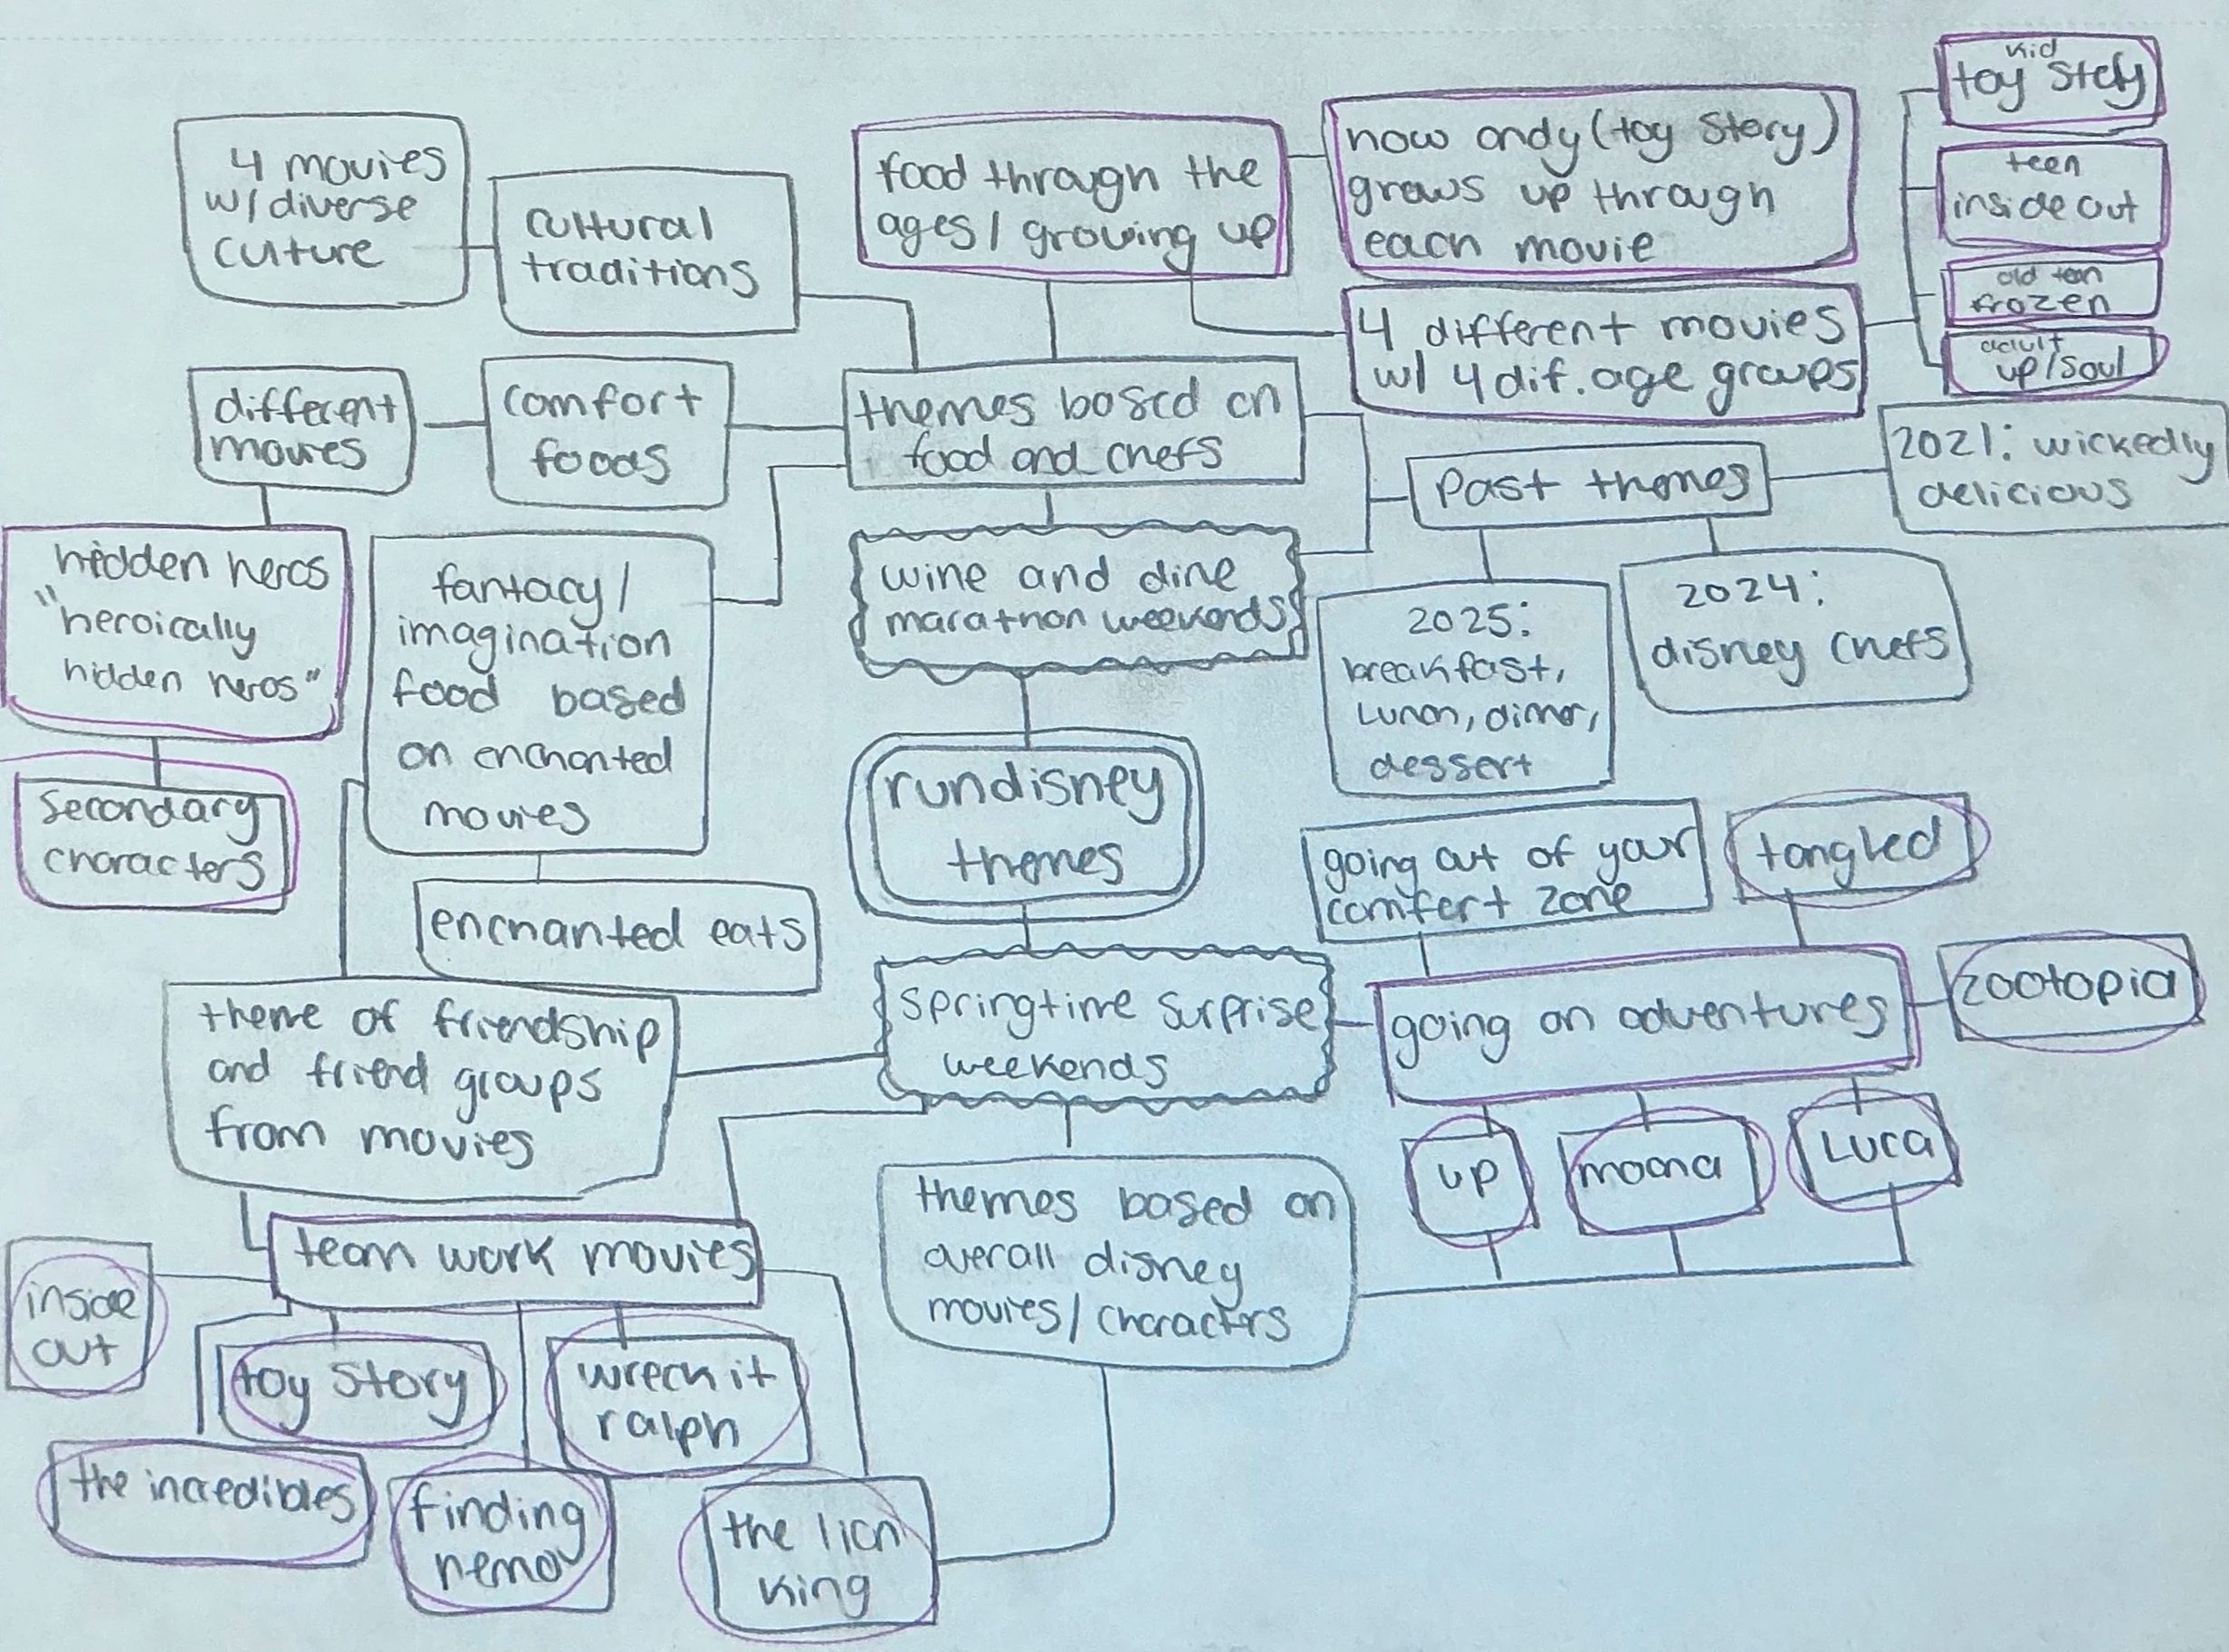 kid
toy story
4 movies
w/diverse
culture
cultural
traditions
food through the
ages/growing up
how andy (toy story)
grows up through
each movie
teen
inside out
old teen
frozen
adult
up/soul
4 different movies
w/ 4 dif. age groups
different
movies
comfort
foods
themes based on
food and chefs
Past themes
2021: wickedly
delicious
hidden heros
"heroically
hidden heros"
fantacy/
imagination
food based
on enchanted
movies
wine and dine
marathon weekends
2025:
breakfast,
Lunch, dinner,
dessert
2024:
disney chefs
secondary
characters
rundisney
themes
going out of your
comfort zone
tangled
enchanted eats
theme of friendship
and friend groups
from movies
springtime surprise
weekends
going on adventures
zootopia
up
moana
Luca
themes based on
overall disney
movies/characters
team work movies
inside
out
toy story
wreck it
ralph
the incredibles
finding
nemo
the lion
king